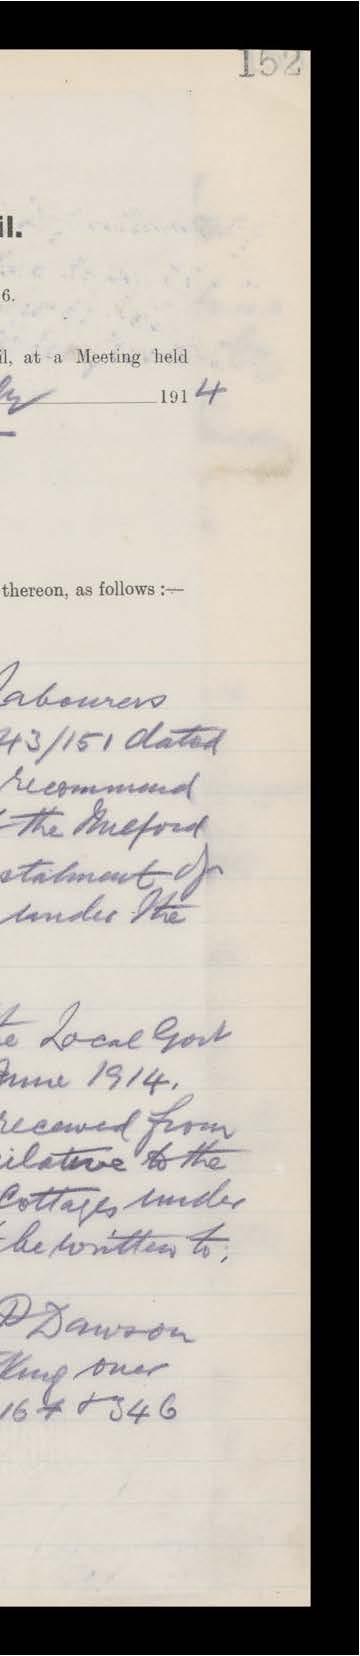 152
il.
6.
il, at a Meeting held
191 4
thereon, as follows :—
Labourers
43/151 dated
recommend
the Milford
stalment of
under the
e Local Govt
June 1914.
received from
relative to the
Cottages under
be written to;
P Dawson
King over
164 & 346